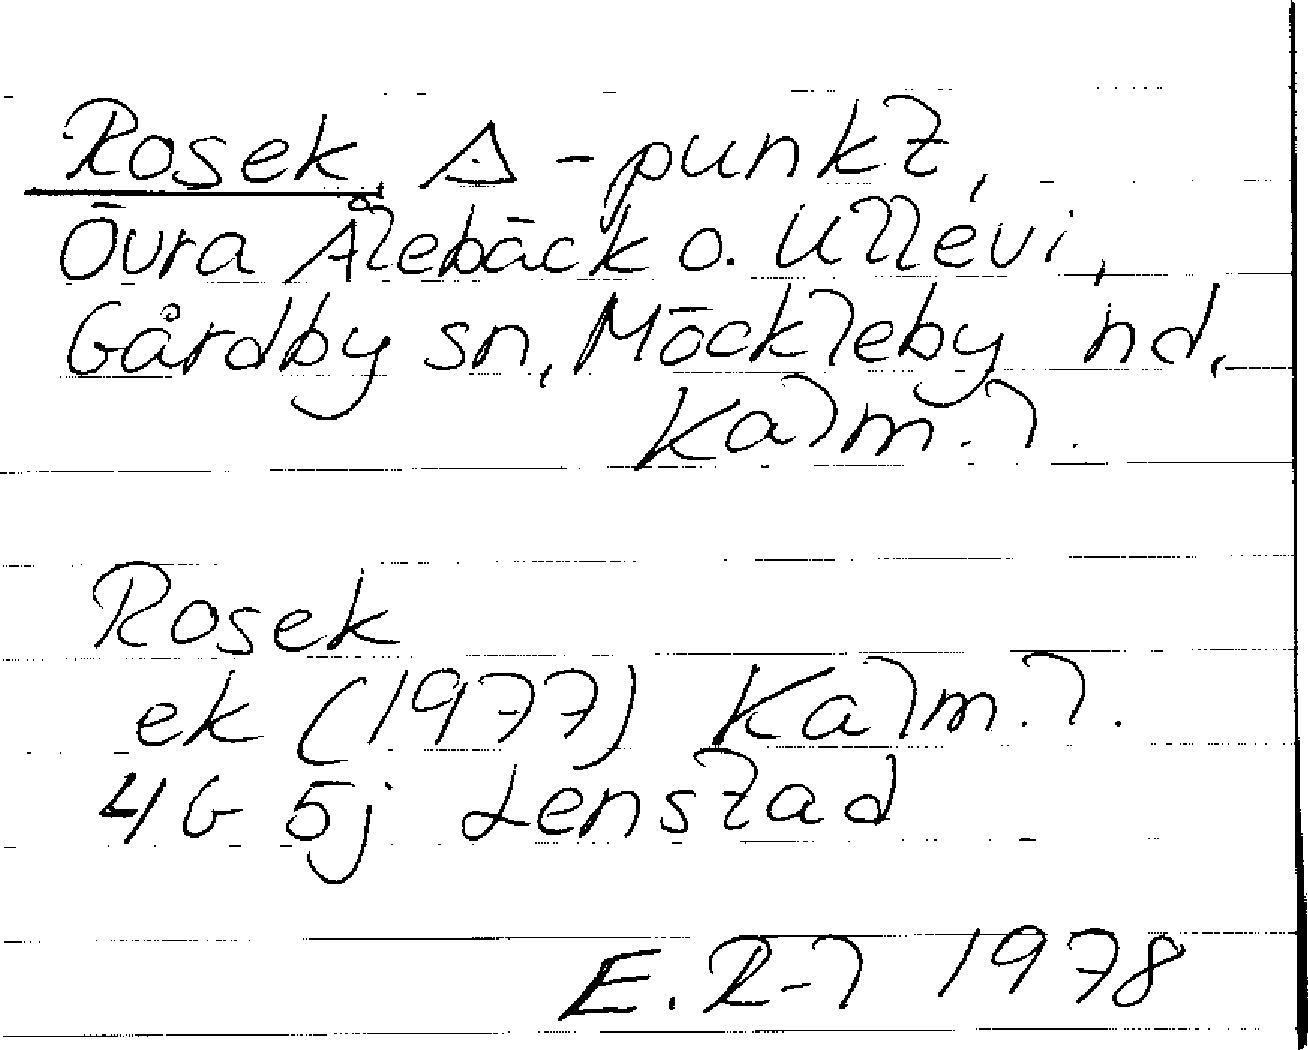 Rosek, △-punkt,
Övra Ålebäck o. Ullevi,
Gårdby sn, Möckleby hd,
Kalm. l.
Rosek
ek (1977) Kalm. l.
4G 5j Lenstad
E. R-l 1978